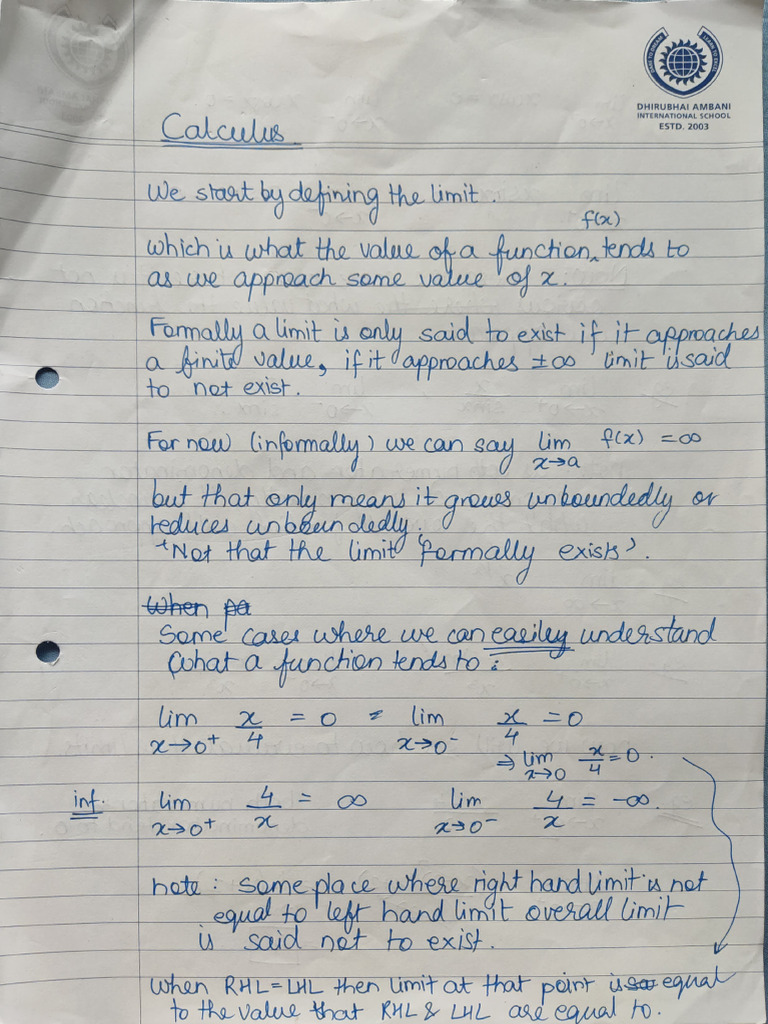 DHIRUBHAI AMBANI
INTERNATIONAL SCHOOL
ESTD. 2003
Calculus
We start by defining the limit.
f(x)
which is what the value of a function ‸ tends to
as we approach some value of x.
Formally a limit is only said to exist if it approaches
a finite value, if it approaches ±∞ limit is said
to not exist.
For now (informally) we can say lim f(x) = ∞
x→a
but that only means it grows unboundedly or
reduces unboundedly.
*Not that the limit 'formally exists'.
When pa
Some cases where we can easiley understand
what a function tends to :
lim x/4 = 0 = lim x/4 = 0
x→0⁺ x→0⁻
⇒ lim x/4 = 0.
x→0
inf. lim 4/x = ∞ lim 4/x = -∞.
x→0⁺ x→0⁻
note : some place where right hand limit is not
equal to left hand limit overall limit
is said not to exist.
When RHL = LHL then limit at that point is sa equal
to the value that RHL & LHL are equal to.